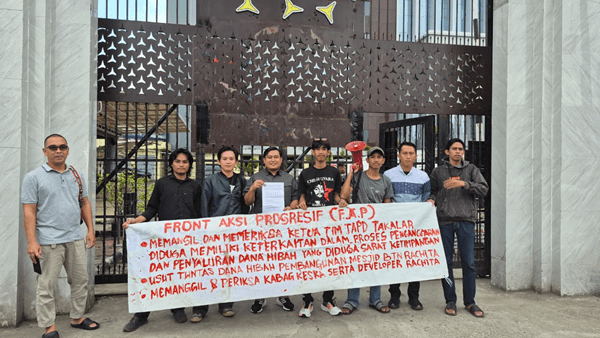 FRONT AKSI PROGRESIF (F.A.P)
• MEMANGIL DAN MEMERIKSA KETUA TIM TAPD TAKALAR
DIDUGA MEMILIKI KETERKAITAN DALAM PROSES PERANCANGAN
DAN PENYALURAN DANA HIBAH YANG DIDUGA SARAT KETIMPANGAN
• USUT TUNTAS DANA HIBAH PEMBANGUNAN MESJID BTN RACHITA
• MEMANGGIL & PERIKSA KABAG KESRA SERTA DEVELOPER RACHITA